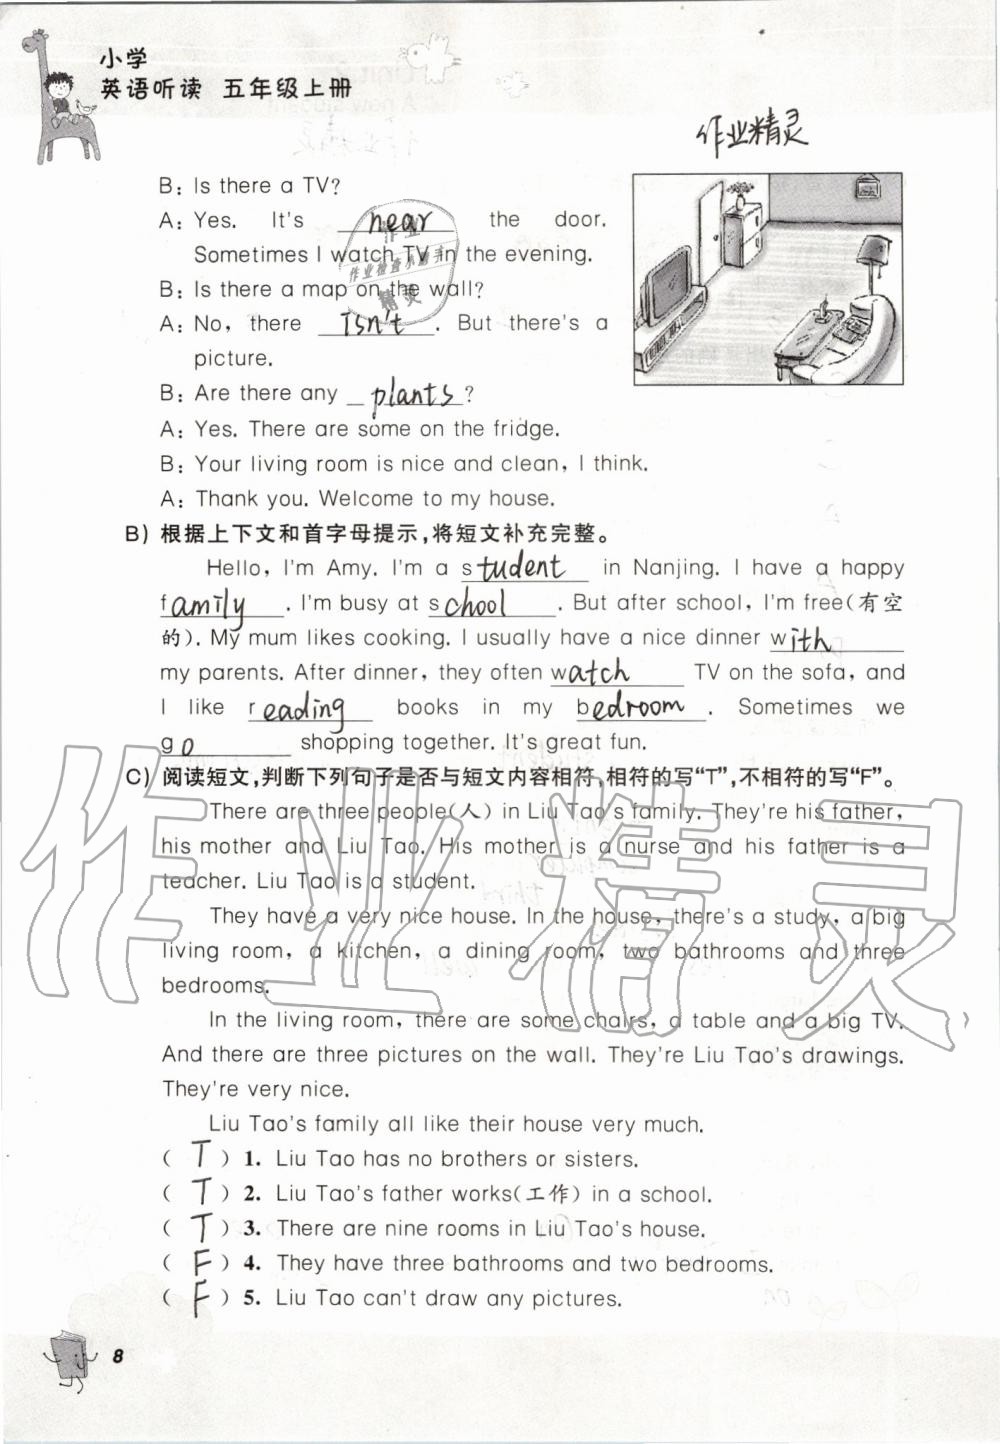 小学
英语听读 五年级上册
作业精灵
B: Is there a TV?
A: Yes. It's near the door.
Sometimes I watch TV in the evening.
B: Is there a map on the wall?
A: No, there isn't. But there's a
picture.
B: Are there any plants?
A: Yes. There are some on the fridge.
B: Your living room is nice and clean, I think.
A: Thank you. Welcome to my house.
B) 根据上下文和首字母提示,将短文补充完整。
Hello, I'm Amy. I'm a student in Nanjing. I have a happy
family. I'm busy at school. But after school, I'm free(有空
的). My mum likes cooking. I usually have a nice dinner with
my parents. After dinner, they often watch TV on the sofa, and
I like reading books in my bedroom. Sometimes we
go shopping together. It's great fun.
C) 阅读短文,判断下列句子是否与短文内容相符,相符的写“T”,不相符的写“F”。
There are three people(人) in Liu Tao's family. They're his father,
his mother and Liu Tao. His mother is a nurse and his father is a
teacher. Liu Tao is a student.
They have a very nice house. In the house, there's a study, a big
living room, a kitchen, a dining room, two bathrooms and three
bedrooms.
In the living room, there are some chairs, a table and a big TV.
And there are three pictures on the wall. They're Liu Tao's drawings.
They're very nice.
Liu Tao's family all like their house very much.
( T ) 1. Liu Tao has no brothers or sisters.
( T ) 2. Liu Tao's father works(工作) in a school.
( T ) 3. There are nine rooms in Liu Tao's house.
( F ) 4. They have three bathrooms and two bedrooms.
( F ) 5. Liu Tao can't draw any pictures.
8
作业精灵